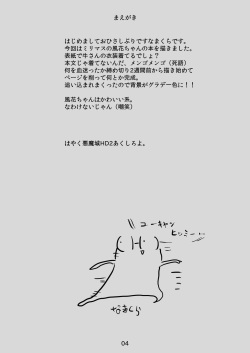 まえがき
はじめましておひさしぶりですなまくらです。
今回はミリマスの風花ちゃんの本を描きました。
表紙で牛さんの衣装着てるでしょ？
本文じゃ着てないんだ、メンゴメンゴ（死語）
何を血迷ったか締め切り2週間前から描き始めて
ページを削って何とか完成。
追い込まれまくったので背景がグラデー色に！！
風花ちゃんはかわいい系。
なわけないじゃん（嘲笑）
はやく悪魔城HD2あくしろよ。
ユーキャン
ヒットミー…
なまくら
04